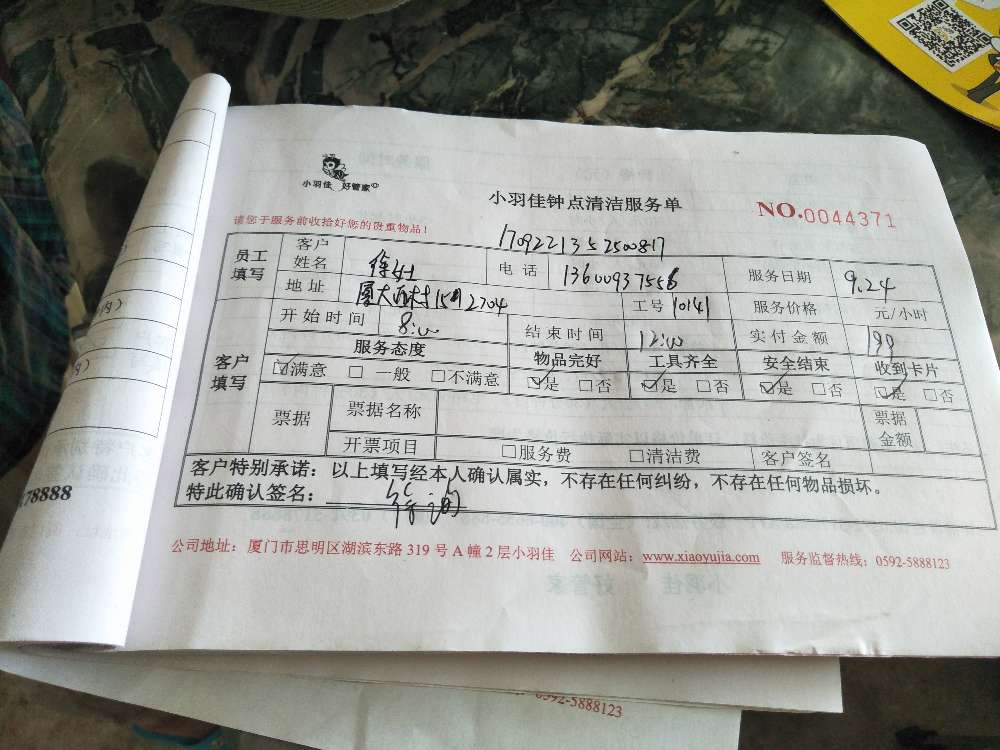 小羽佳 好管家
小羽佳钟点清洁服务单
NO.0044371
请您于服务前收拾好您的贵重物品！
1709221352500817
员工填写 客户姓名 徐女士 电话 13600937556 服务日期 9.24
地址 厦大西村15# 2704 工号 10141 服务价格 元/小时
客户填写 开始时间 8:00 结束时间 12:00 实付金额 199
服务态度 物品完好 工具齐全 安全结束 收到卡片
☑满意 □一般 □不满意 ☑是 □否 ☑是 □否 ☑是 □否 ☑是 □否
票据 票据名称 票据金额
开票项目 □服务费 □清洁费 客户签名
客户特别承诺：以上填写经本人确认属实，不存在任何纠纷，不存在任何物品损坏。
特此确认签名：
公司地址：厦门市思明区湖滨东路 319 号 A 幢 2 层小羽佳 公司网站：www.xiaoyujia.com 服务监督热线：0592-5888123
78888
0592-5888123